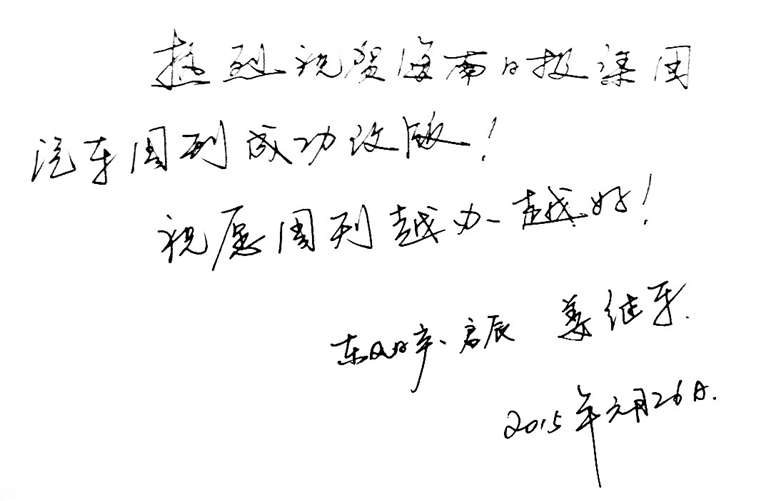 热烈祝贺海南日报集团
汽车周刊成功改版！
祝愿周刊越办越好！
东风日产·启辰 姜继军.
2015年元月26日.